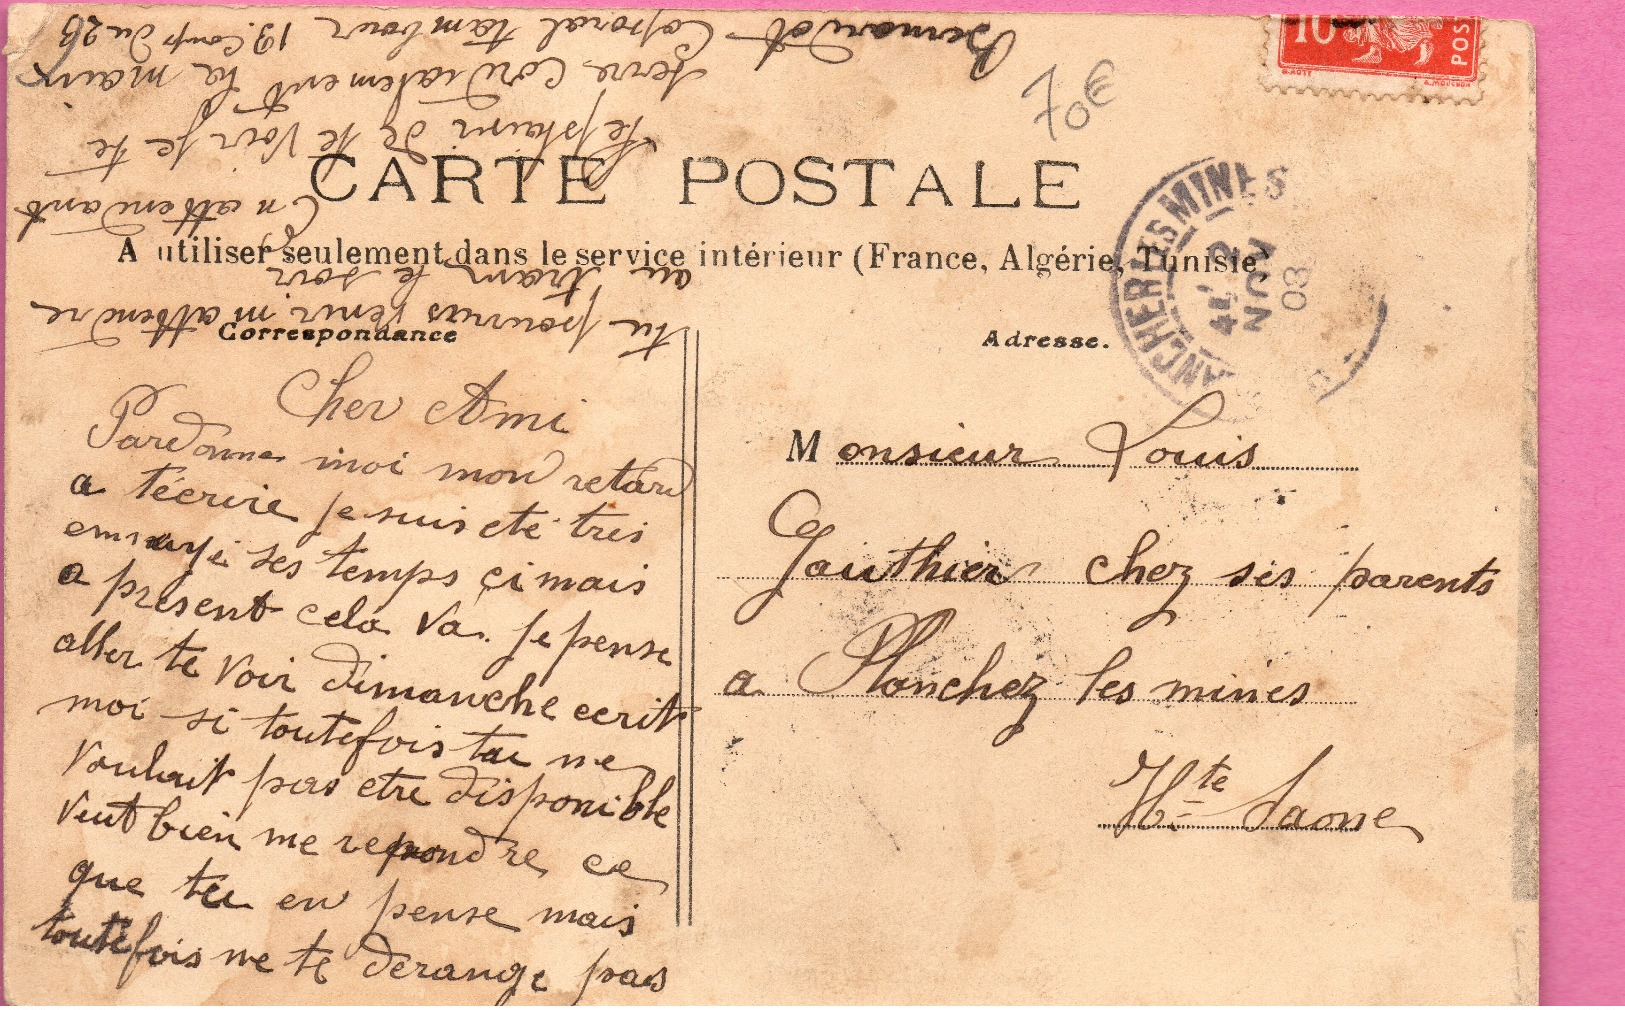 CARTE POSTALE
A utiliser seulement dans le service intérieur (France, Algérie, Tunisie)
Correspondance
Adresse.
Cher Ami
Pardonne moi mon retard
a técrire je suis eté tres
ennuyé ses temps çi mais
a present cela va. je pense
aller te voir dimanche ecrit
moi si toutefois tu ne
voulait pas etre disponible
veut bien me repondre ce
que tu en pense mais
toutefois ne te derange pas
tu pourras venir m attendre
au tram le soir
En attendant
le plaisir de te voir je te
serre cordialement la main
Bernardot Caporal tambour 19. Comp du 23
Monsieur Louis
Gauthier chez ses parents
a Planchez les mines
Hte Saone
70€
10
POS
PLANCHER LES MINES
4E 2
NOV
03